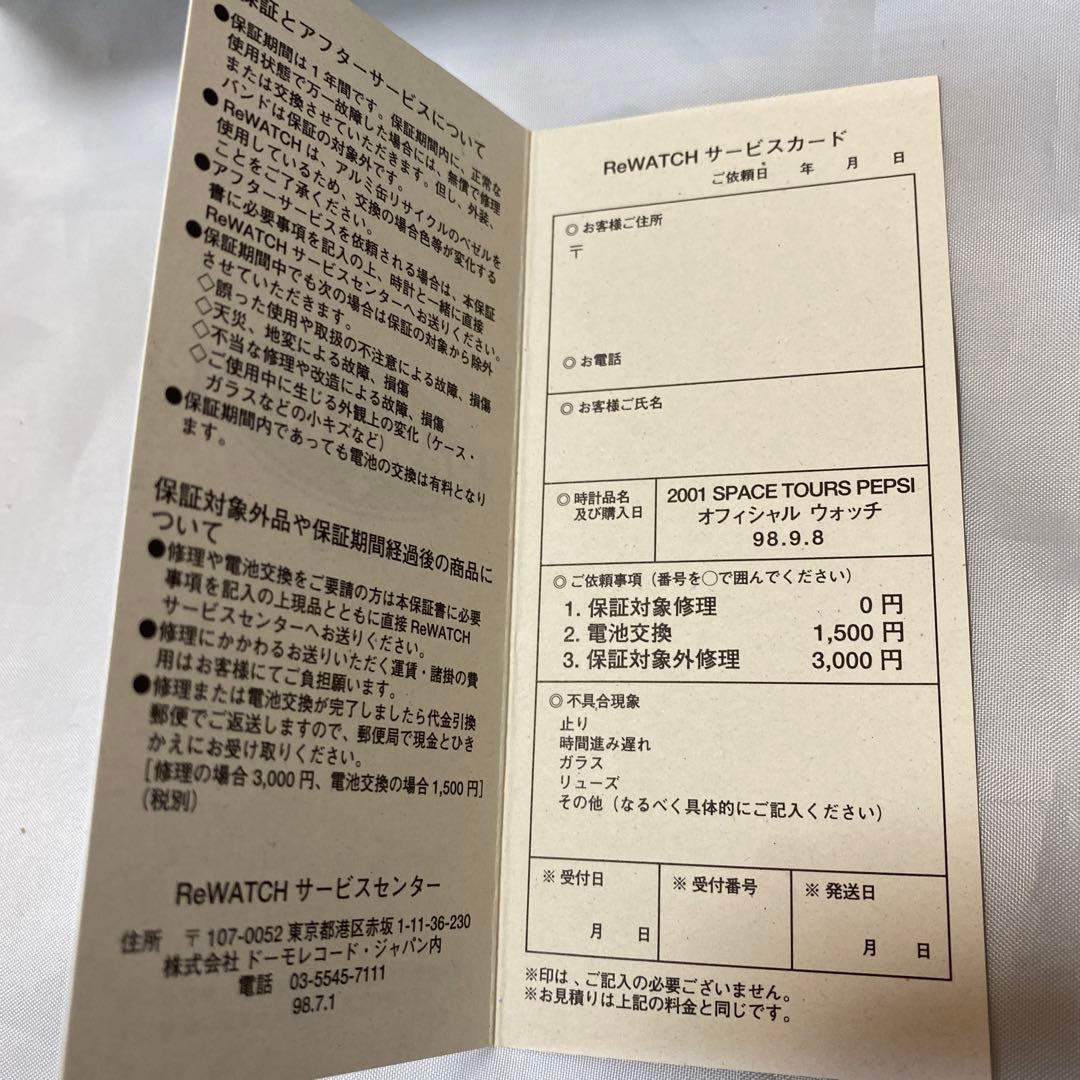 保証とアフターサービスについて
●保証期間は1年間です。保証期間内に、正常な
使用状態で万一故障した場合には、無償で修理
または交換させていただきます。但し、外装、
バンドは保証の対象外です。
●ReWATCHは、アルミ缶リサイクルのベゼルを
使用しているため、交換の場合色等が変化する
ことをご了承ください。
●アフターサービスを依頼される場合は、本保証
書に必要事項を記入の上、時計と一緒に直接
ReWATCHサービスセンターへお送りください。
●保証期間中でも次の場合は保証の対象から除外
させていただきます。
◇誤った使用や取扱の不注意による故障、損傷
◇天災、地変による故障、損傷
◇不当な修理や改造による故障、損傷
◇ご使用中に生じる外観上の変化（ケース・
ガラスなどの小キズなど）
●保証期間内であっても電池の交換は有料となり
ます。
保証対象外品や保証期間経過後の商品に
ついて
●修理や電池交換をご要請の方は本保証書に必要
事項を記入の上現品とともに直接ReWATCH
サービスセンターへお送りください。
●修理にかかわるお送りいただく運賃・諸掛の費
用はお客様にてご負担願います。
●修理または電池交換が完了しましたら代金引換
郵便でご返送しますので、郵便局で現金とひき
かえにお受け取りください。
[修理の場合3,000円、電池交換の場合1,500円]
（税別）
ReWATCH サービスセンター
住所 〒107-0052 東京都港区赤坂1-11-36-230
株式会社 ドーモレコード・ジャパン内
電話 03-5545-7111
98.7.1
ReWATCH サービスカード
ご依頼日 年 月 日
◎ お客様ご住所
〒
◎ お電話
◎ お客様ご氏名
◎ 時計品名
及び購入日
2001 SPACE TOURS PEPSI
オフィシャル ウォッチ
98.9.8
◎ ご依頼事項（番号を○で囲んでください）
1. 保証対象修理 0 円
2. 電池交換 1,500 円
3. 保証対象外修理 3,000 円
◎ 不具合現象
止り
時間進み遅れ
ガラス
リューズ
その他（なるべく具体的にご記入ください）
※ 受付日
月 日
※ 受付番号
※ 発送日
月 日
※印は、ご記入の必要ございません。
※お見積りは上記の料金と同じです。